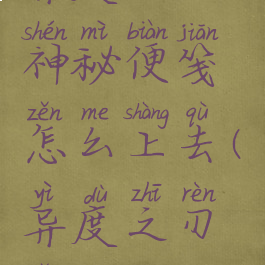 shén mì biàn jiān
神秘便笺
zěn me shàng qù
怎么上去(
yì dù zhī rèn
异度之刃